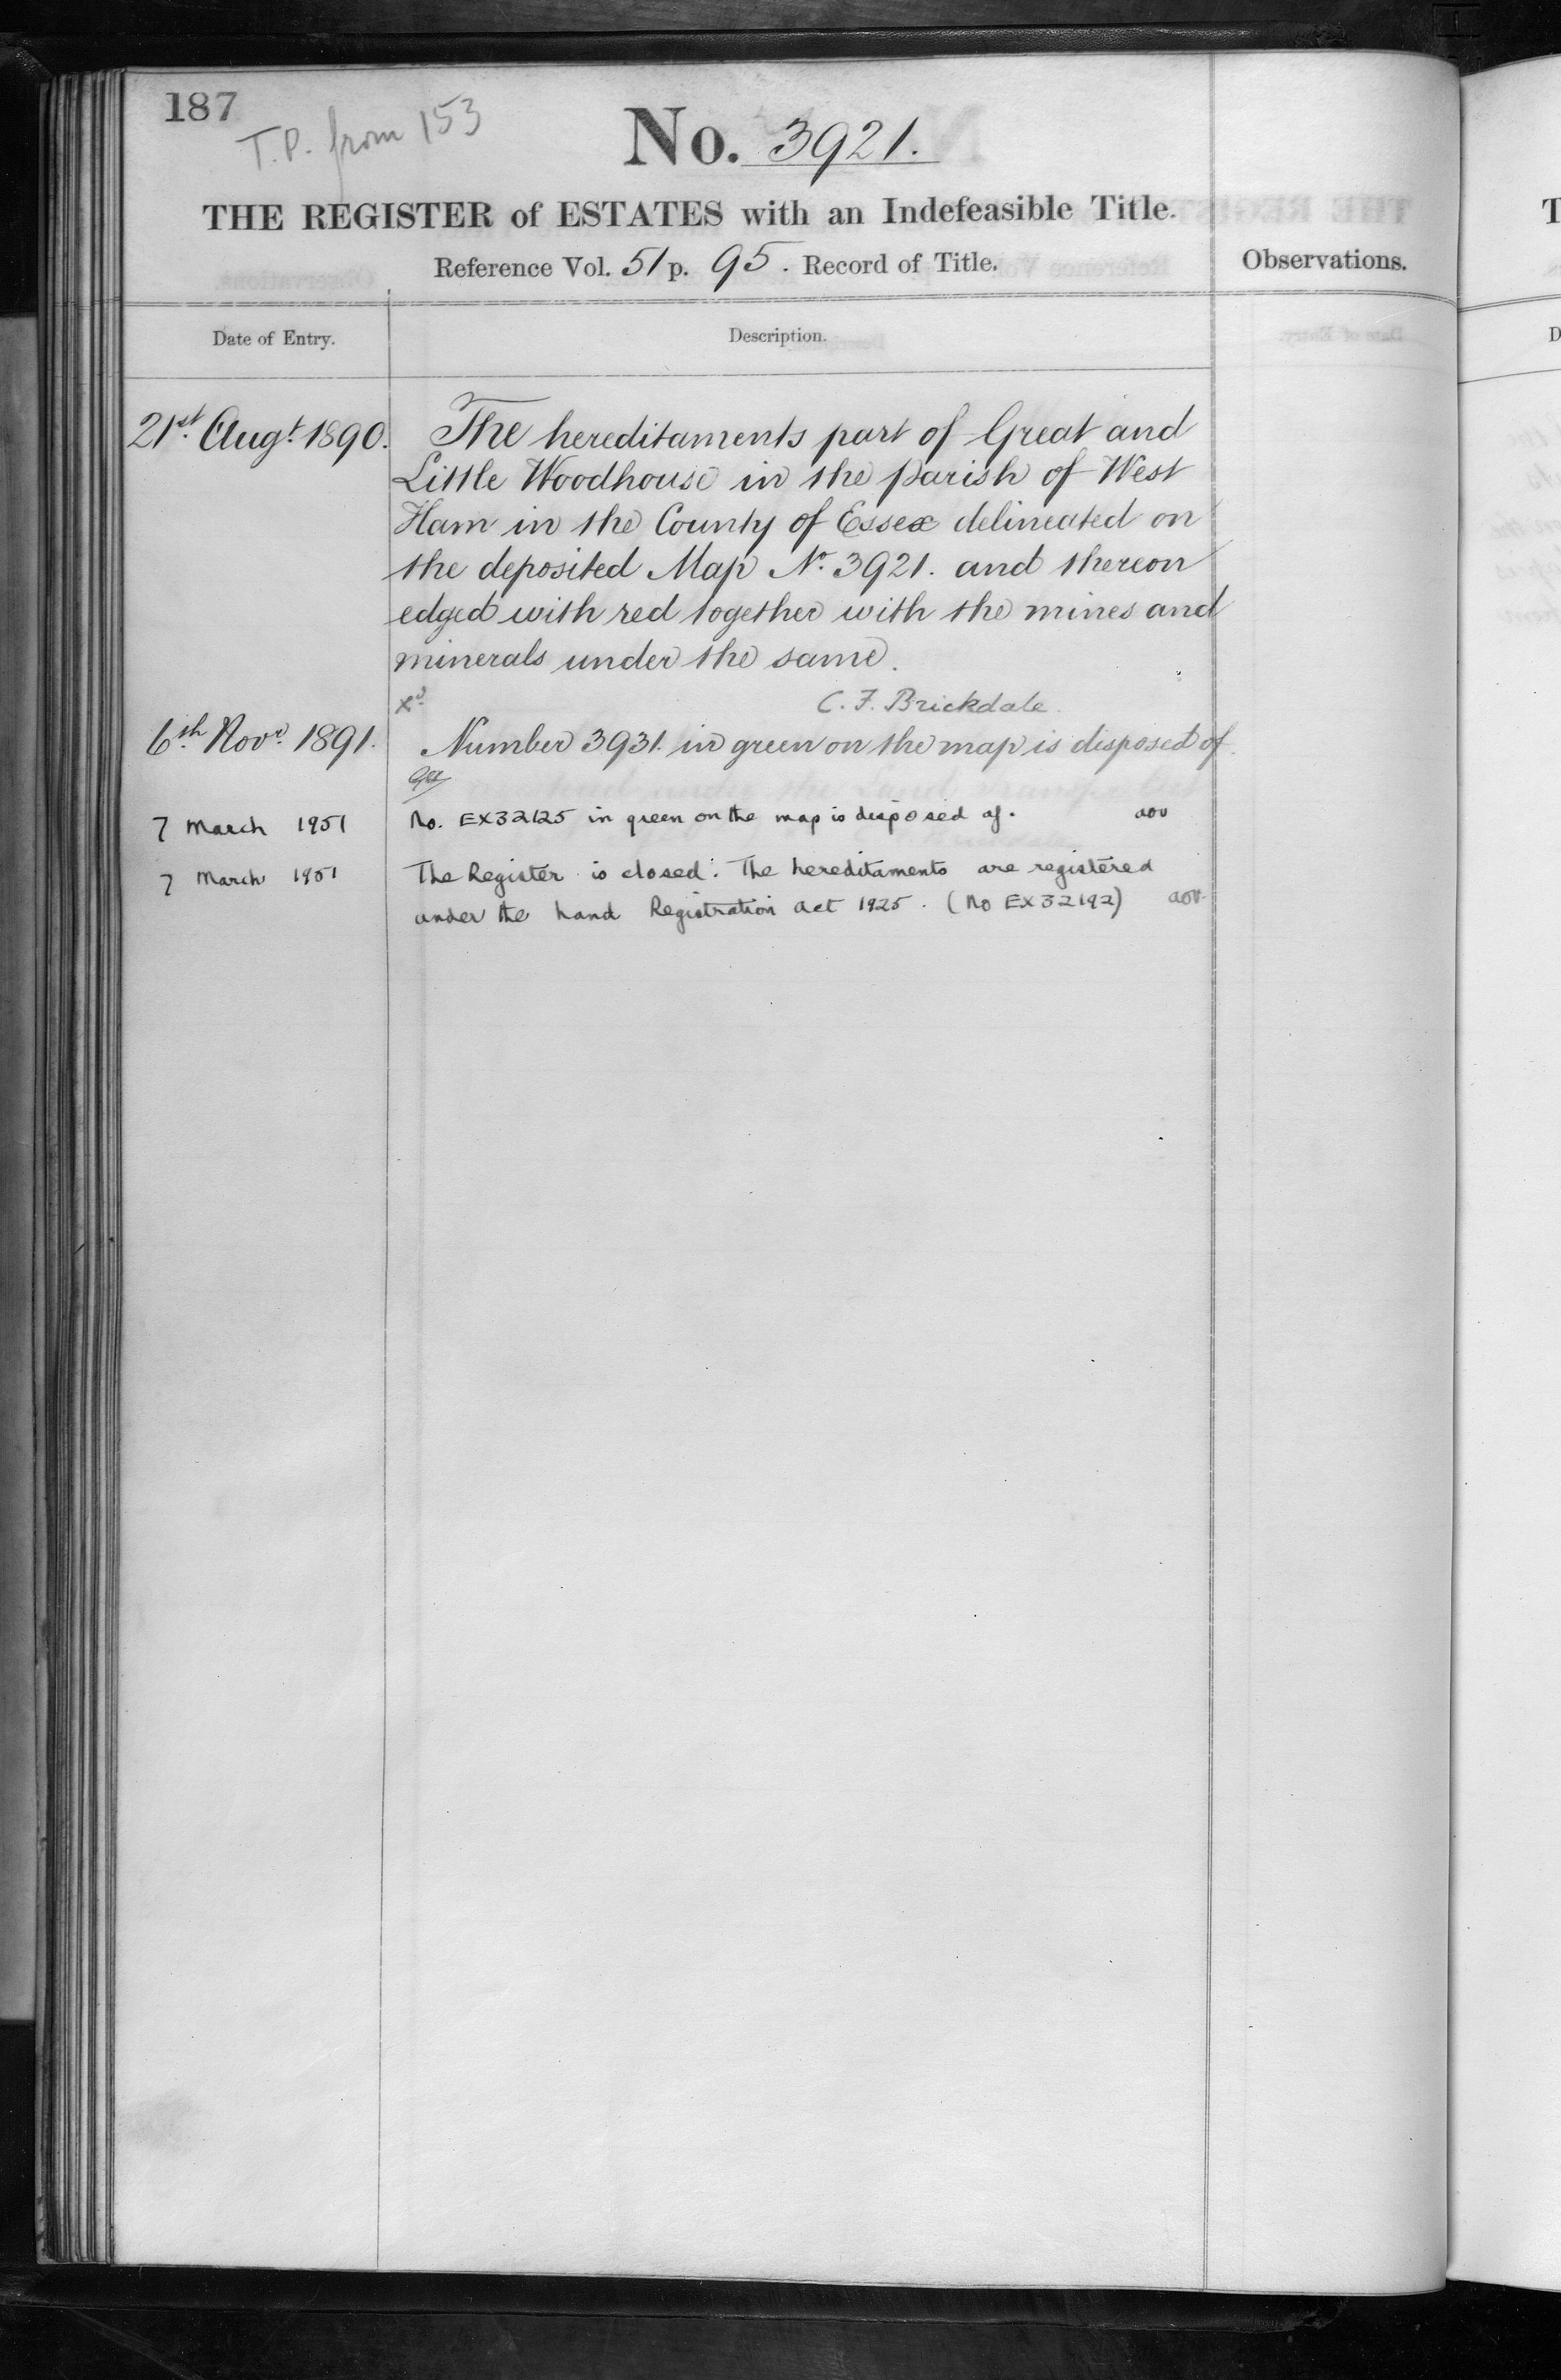 187
T.P. from 153
No. 3921.
THE REGISTER of ESTATES with an Indefeasible Title.
Reference Vol. 51 p. 95. Record of Title.
Observations.
Date of Entry.
Description.
21st Augt. 1890.
The hereditaments part of Great and
Little Woodhouse in the parish of West
Ham in the County of Essex delineated on
the deposited Map No. 3921. and thereon
edged with red together with the mines and
minerals under the same.
C. F. Brickdale.
6th Novr. 1891.
Number 3931. in green on the map is disposed of.
7 March 1951
No. EX32125 in green on the map is disposed of.
7 March 1951
The Register is closed. The hereditaments are registered
under the Land Registration Act 1925. (No EX32192)